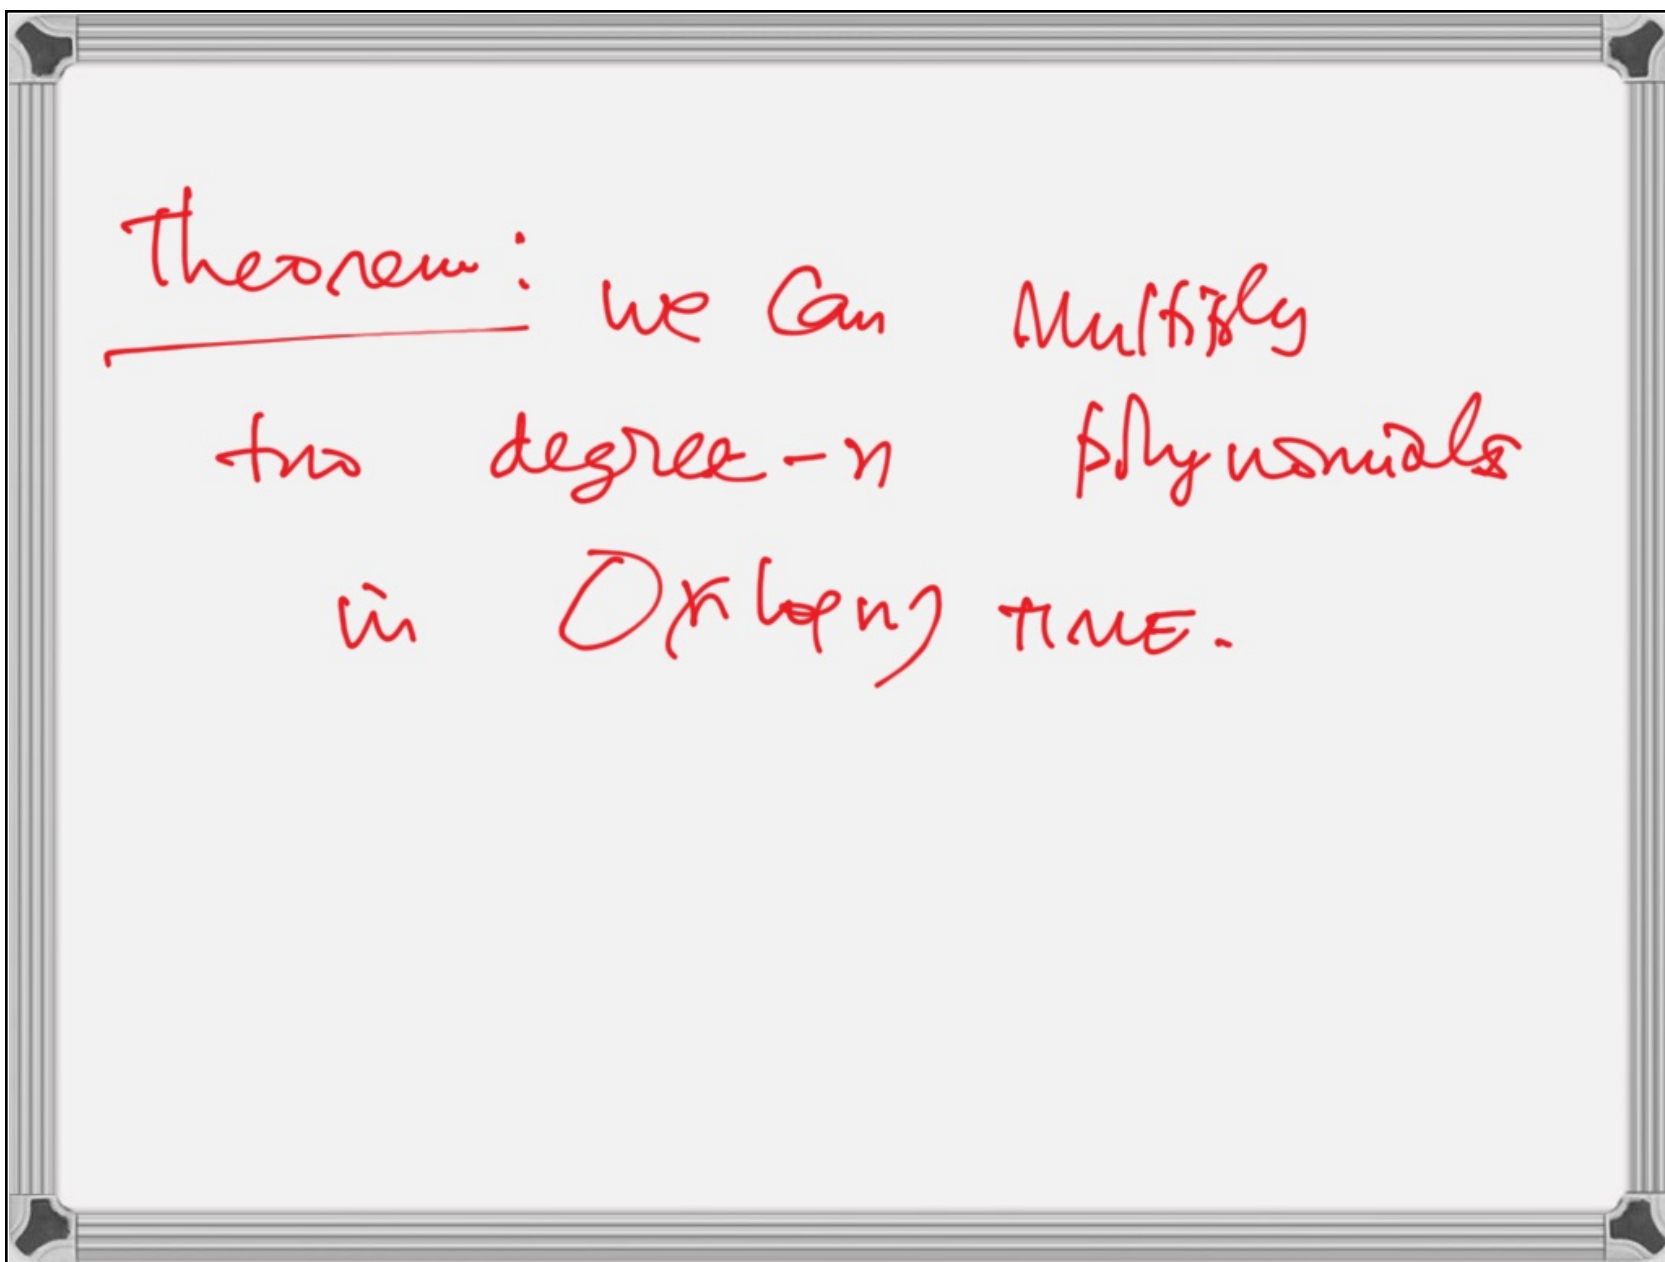 Theorem: we can Multiply
two degree-n polynomials
in O(n log n) TIME.